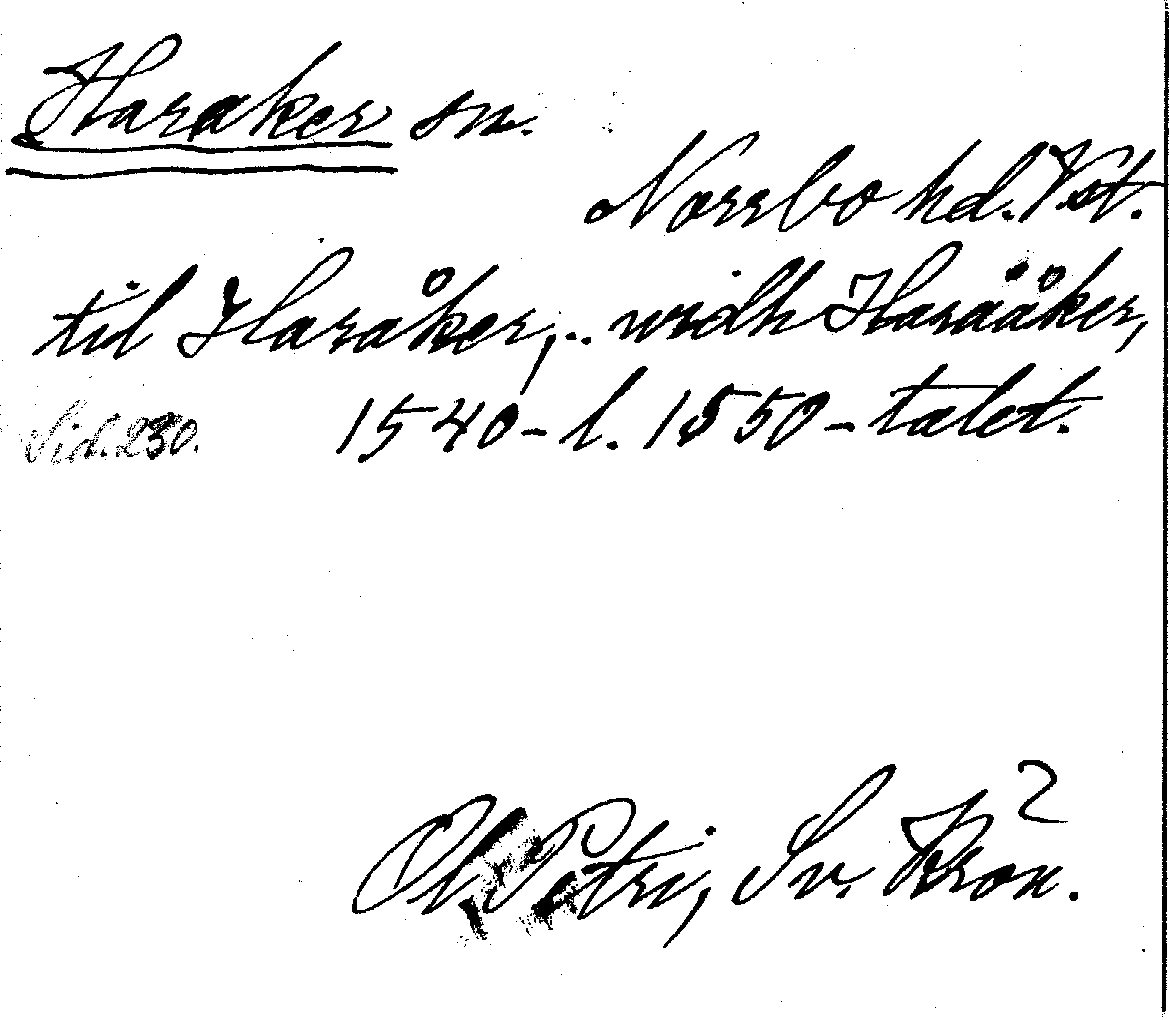 Haraker sn.
Norrbo hd. Vst.
til Haråker,.. widh Haraåker,
Sid. 230. 1540- l. 1550-talet.
Ol. Petri, Sv. Krön. 2